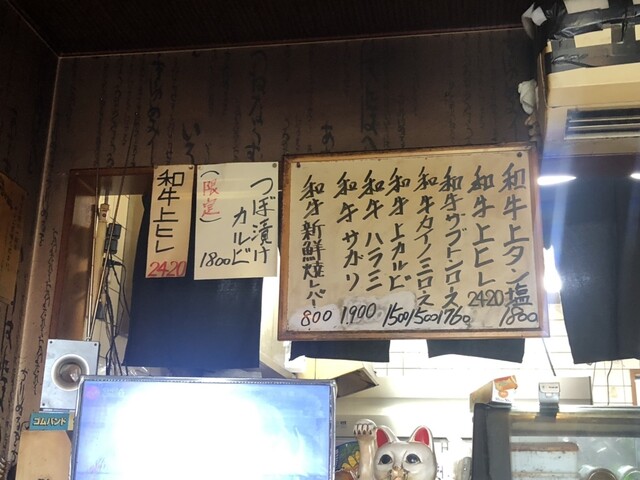 和牛上タン塩 1800
和牛上ヒレ 2420
和牛ザブトンロース 1760
和牛カイノミロース 1500
和牛上カルビ 1500
和牛ハラミ
和牛サガリ 1.900
和牛新鮮焼レバー 800
つぼ漬け
カルビ 1800
(限定)
和牛上ヒレ 2420
ゴムバンド